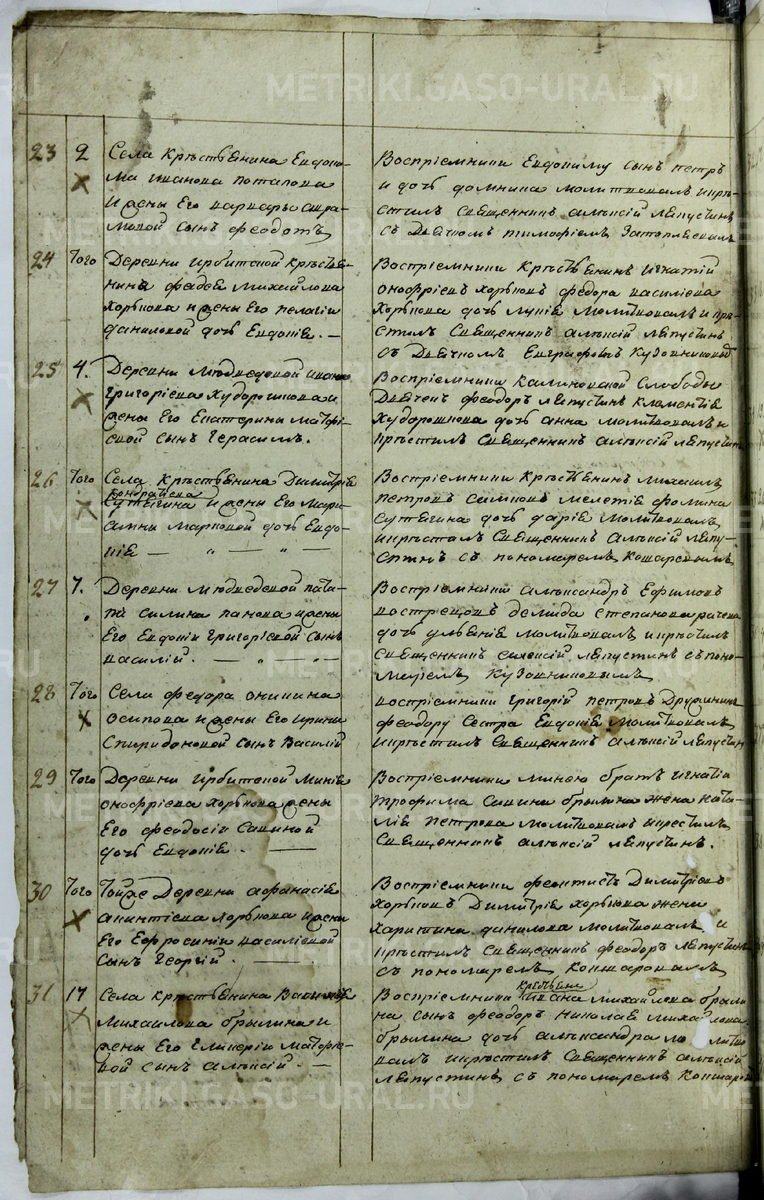 METRIKI.GASO-URAL.RU
23 2 Села крѣстьянина Евдоки-
ма Иванова Потапова
и жены Его Варвары Авра-
мовой сынъ Феодотъ
Воспріемники Евдокиму сынъ Петръ
и дочь Домника молитвовалъ и крѣ-
стилъ Священникъ Алѣксій Лѣпустинъ
съ Дьячкомъ Тимофѣемъ Затопляевымъ
24 Того Деревни Ирбитской Крѣстья-
нина Фадея Михайлова
Хорькова и жены Его Пелагіи
Даниловой дочь Евдокія. —
Воспріемники Крѣстьянинъ Игнатій
Онофріевъ Хорьковъ Федора Василіева
Хорькова дочь Лукія молитвовалъ и кре-
стилъ Священникъ Алѣксій Лѣпустинъ
съ Дьячкомъ Евграфомъ Кузовниковымъ
25 4. Деревни Мѣдведевой Ивана
Григоріева Худорошкова и
жены Его Екатерины Матфі-
евой сынъ Герасимъ.
Воспріемники Калиновской Слободы
Дьячекъ Феодоръ Лѣпустинъ Климентія
Худорошкова дочь Анна молитвовалъ и
крѣстилъ Священникъ Алѣксій Лѣпустинъ
26 Того Села Крѣстьянина Димитрія
Кондратьева
Сутягина и жены Его Мари-
амны Марковой дочь Евдо-
кія — " — " —
Воспріемники Крѣстьянинъ Михаилъ
Петровъ Мелетія Фомина
Сутягина дочь Дарія молитвовалъ
и крѣстилъ Священникъ Алѣксій Лѣпу-
стинъ съ пономаремъ Кошаровымъ
27 7. Деревни Мѣдведевой
Силина Панова жены
Его Евдокіи Григоріевой сынъ
Василій. — " — " —
Воспріемники Алѣксандръ Ефимовъ
Вострецовъ Демида Степанова
дочь молитвовалъ и крѣстилъ
Священникъ Алѣксій Лѣпустинъ съ поно-
маремъ Кузовниковымъ.
28 Того Села Федора
Осипова и жены Его Ирины
Спиридоновой сынъ Василій
Воспріемники Григорій Петровъ Дружининъ
Феодору сестра Евдокія молитвовалъ
и крѣстилъ Священникъ Алѣксій Лѣпустинъ
29 Того Деревни Ирбитской Минея
Онофріева Хорькова жены
Его Феодосіи Савиной
дочь Евдокія. —
Воспріемники Минею братъ Игнатій
Трофима Савина Брылина жена Ната-
лія Петрова молитвовалъ и крестилъ
Священникъ Алѣксій Лѣпустинъ.
30 Того Той же Деревни Афанасія
Акинтіева Хорькова и жены
Его Ефросиніи Василіевой
сынъ Георгій. —
Воспріемники Феоктистъ Димитріевъ
Хорьковъ Димитрія Хорькова жена
Харитина Данилова молитвовалъ и
крѣстилъ Священникъ Феодоръ Лѣпустинъ
съ пономаремъ Кошаровымъ
31 17 Села крѣстьянина Василія
Михаилова Брылина и
жены Его Гликеріи Матфѣе-
вой сынъ Алѣксій. —
Крѣстьянина
Воспріемники Ивана Михайлова Брыли-
на сынъ Феодоръ Николая Михайлова
Брылина дочь Алѣксандра молитво-
валъ и крѣстилъ Священникъ Алѣксій
Лѣпустинъ съ пономаремъ Кошаровымъ
METRIKI.GASO-URAL.RU